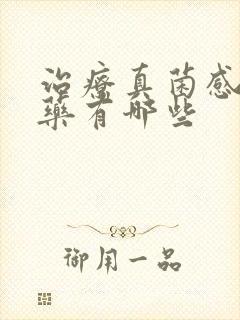 治疗真菌感
药有哪些
御用一品